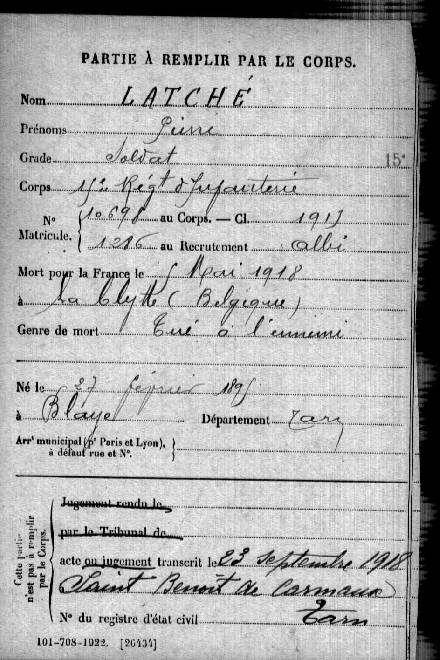 PARTIE À REMPLIR PAR LE CORPS.
Nom LATCHÉ
Prénoms Pierre
Grade Soldat 15e
Corps 15e Régt d'Infanterie
N° Matricule. 10698 au Corps. — Cl. 1915
1216 au Recrutement Albi
Mort pour la France le 5 Mai 1918
à La Clytte (Belgique)
Genre de mort Tué à l'ennemi
Né le 27 février 1895
à Blaye Département Tarn
Arrt municipal (pr Paris et Lyon),
à défaut rue et N°.
Cette partie n'est pas à remplir par le Corps.
Jugement rendu le
par le Tribunal de
acte ou jugement transcrit le 23 septembre 1918
Saint Benoît de Carmaux
Tarn
N° du registre d'état civil
101-708-1922. [26434]